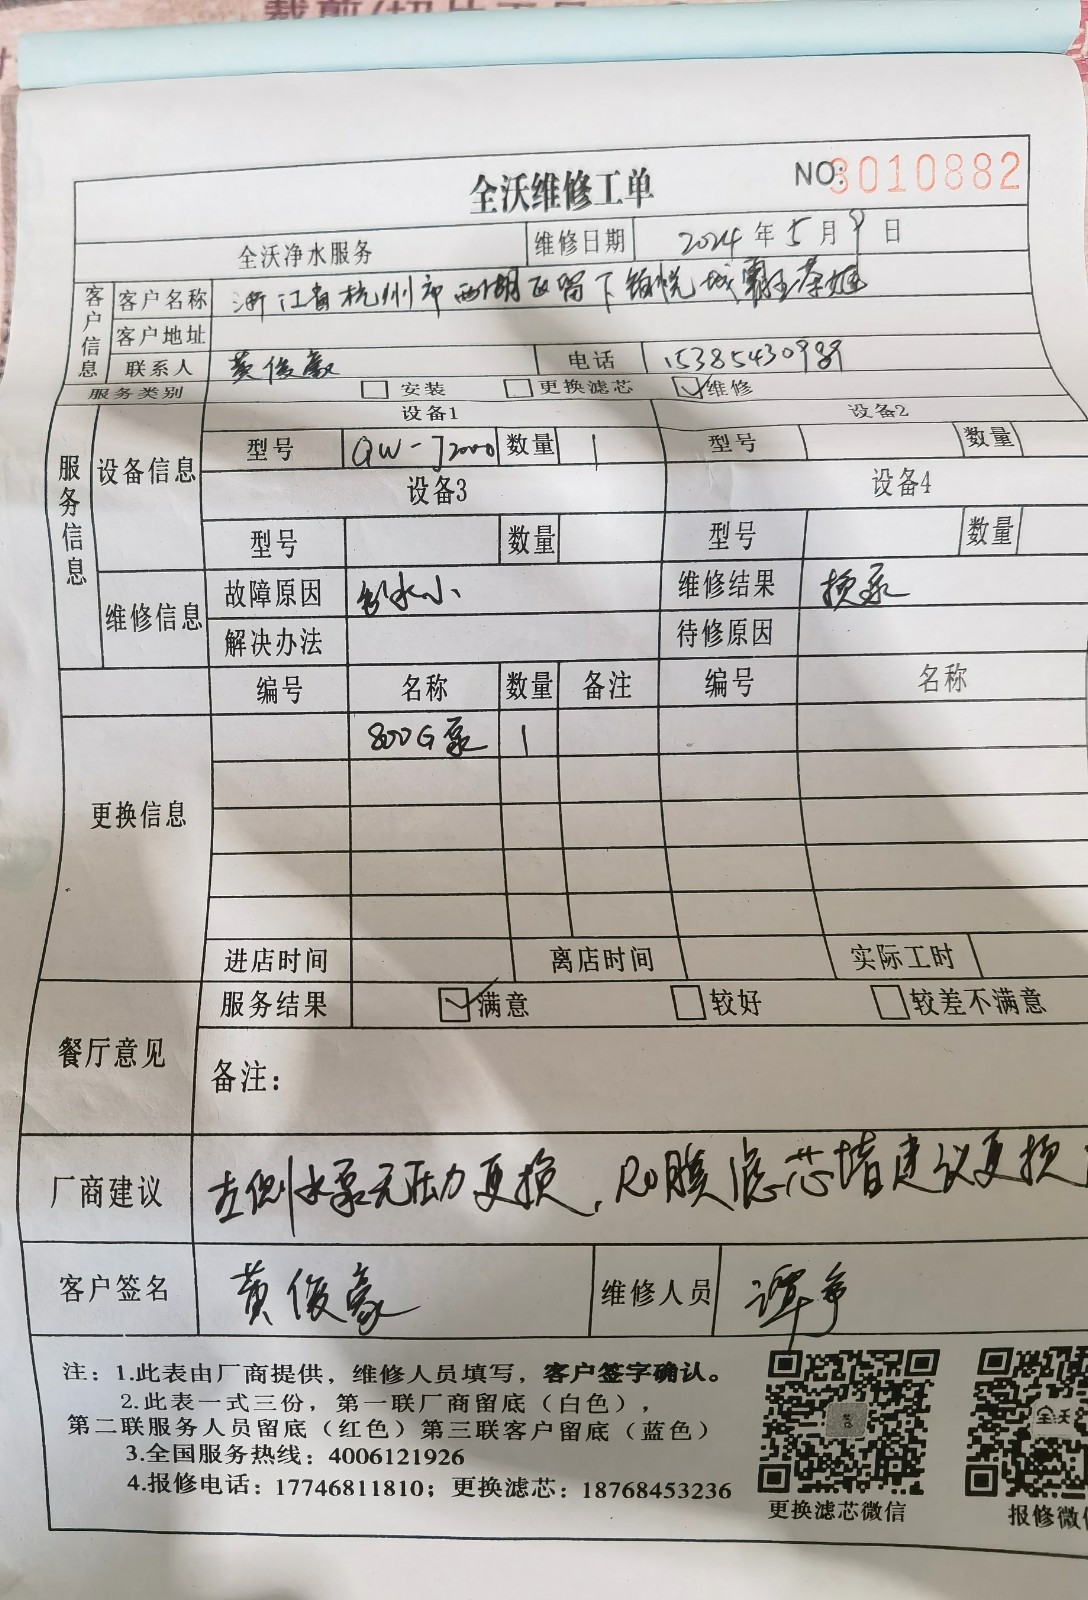 全沃维修工单
NO:3010882
全沃净水服务 维修日期 2024年5月9日
客户信息
客户名称 浙江省杭州市西湖区留下铂悦城霸王茶姬
客户地址
联系人 黄俊豪 电话 15385430989
服务类别 安装 更换滤芯 维修
服务信息
设备信息
设备1 设备2
型号 QW-J2000 数量 1 型号 数量
设备3 设备4
型号 数量 型号 数量
维修信息
故障原因 出水小 维修结果 换泵
解决办法 待修原因
编号 名称 数量 备注 编号 名称
更换信息
800G泵 1
进店时间 离店时间 实际工时
餐厅意见
服务结果 满意 较好 较差不满意
备注:
厂商建议 左侧水泵无压力更换,RO膜滤芯堵建议更换
客户签名 黄俊豪 维修人员 谭争
注:1.此表由厂商提供,维修人员填写,客户签字确认。
2.此表一式三份,第一联厂商留底(白色),
第二联服务人员留底(红色)第三联客户留底(蓝色)
3.全国服务热线:4006121926
4.报修电话:17746811810;更换滤芯:18768453236
全沃
更换滤芯微信 报修微